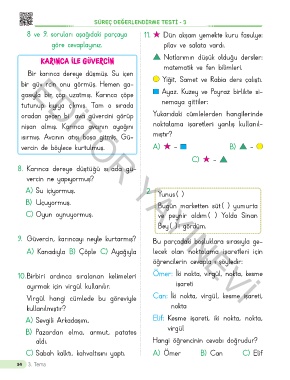 SÜREÇ DEĞERLENDİRME TESTİ - 3
8 ve 9. soruları aşağıdaki parçaya
göre cevaplayınız.
KARINCA İLE GÜVERCİN
Bir karınca dereye düşmüş. Su içen
bir güvercin onu görmüş. Hemen ga-
gasıyla bir çöp uzatmış. Karınca çöpe
tutunup kıyıya çıkmış. Tam o sırada
oradan geçen bir avcı güvercini görüp
nişan almış. Karınca avcının ayağını
ısırmış. Avcının atışı boşa gitmiş. Gü-
vercin de böylece kurtulmuş.
8. Karınca dereye düştüğü sırada gü-
vercin ne yapıyormuş?
A) Su içiyormuş.
B) Uçuyormuş.
C) Oyun oynuyormuş.
9. Güvercin, karıncayı neyle kurtarmış?
A) Kanadıyla B) Çöple C) Ayağıyla
10. Birbiri ardınca sıralanan kelimeleri
ayırmak için virgül kullanılır.
Virgül hangi cümlede bu göreviyle
kullanılmıştır?
A) Sevgili Arkadaşım,
B) Pazardan elma, armut, patates
aldı.
C) Sabah kalktı, kahvaltısını yaptı.
94 3. Tema
11. ★ Dün akşam yemekte kuru fasulye;
pilav ve salata vardı.
▲ Notlarımın düşük olduğu dersler:
matematik ve fen bilimleri.
Yiğit, Samet ve Rabia ders çalıştı.
■ Ayaz, Kuzey ve Poyraz birlikte si-
nemaya gittiler.
Yukarıdaki cümlelerden hangilerinde
noktalama işaretleri yanlış kullanıl-
mıştır?
A) ★ - ■ B) ▲ -
C) ★ - ▲
Yunus ( )
Bugün marketten süt ( ) yumurta
ve peynir aldım ( ) Yolda Sinan
Bey ( ) i gördüm.
Bu parçadaki boşluklara sırasıyla ge-
lecek olan noktalama işaretleri için
öğrencilerin cevapları şöyledir:
Ömer: İki nokta, virgül, nokta, kesme
işareti
Can: İki nokta, virgül, kesme işareti,
nokta
Elif: Kesme işareti, iki nokta, nokta,
virgül
Hangi öğrencinin cevabı doğrudur?
A) Ömer B) Can C) Elif